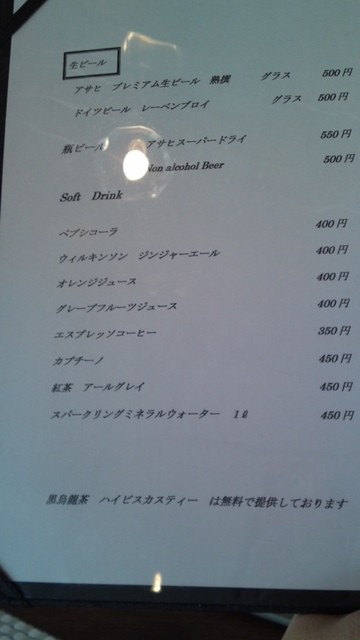 生ビール
アサヒ プレミアム生ビール 熟撰 グラス 500円
ドイツビール レーベンブロイ グラス 500円
瓶ビール アサヒスーパードライ 550円
Non alcohol Beer 500円
Soft Drink
ペプシコーラ 400円
ウィルキンソン ジンジャーエール 400円
オレンジジュース 400円
グレープフルーツジュース 400円
エスプレッソコーヒー 350円
カプチーノ 450円
紅茶 アールグレイ 450円
スパークリングミネラルウォーター 1ℓ 450円
黒烏龍茶 ハイビスカスティー は無料で提供しております